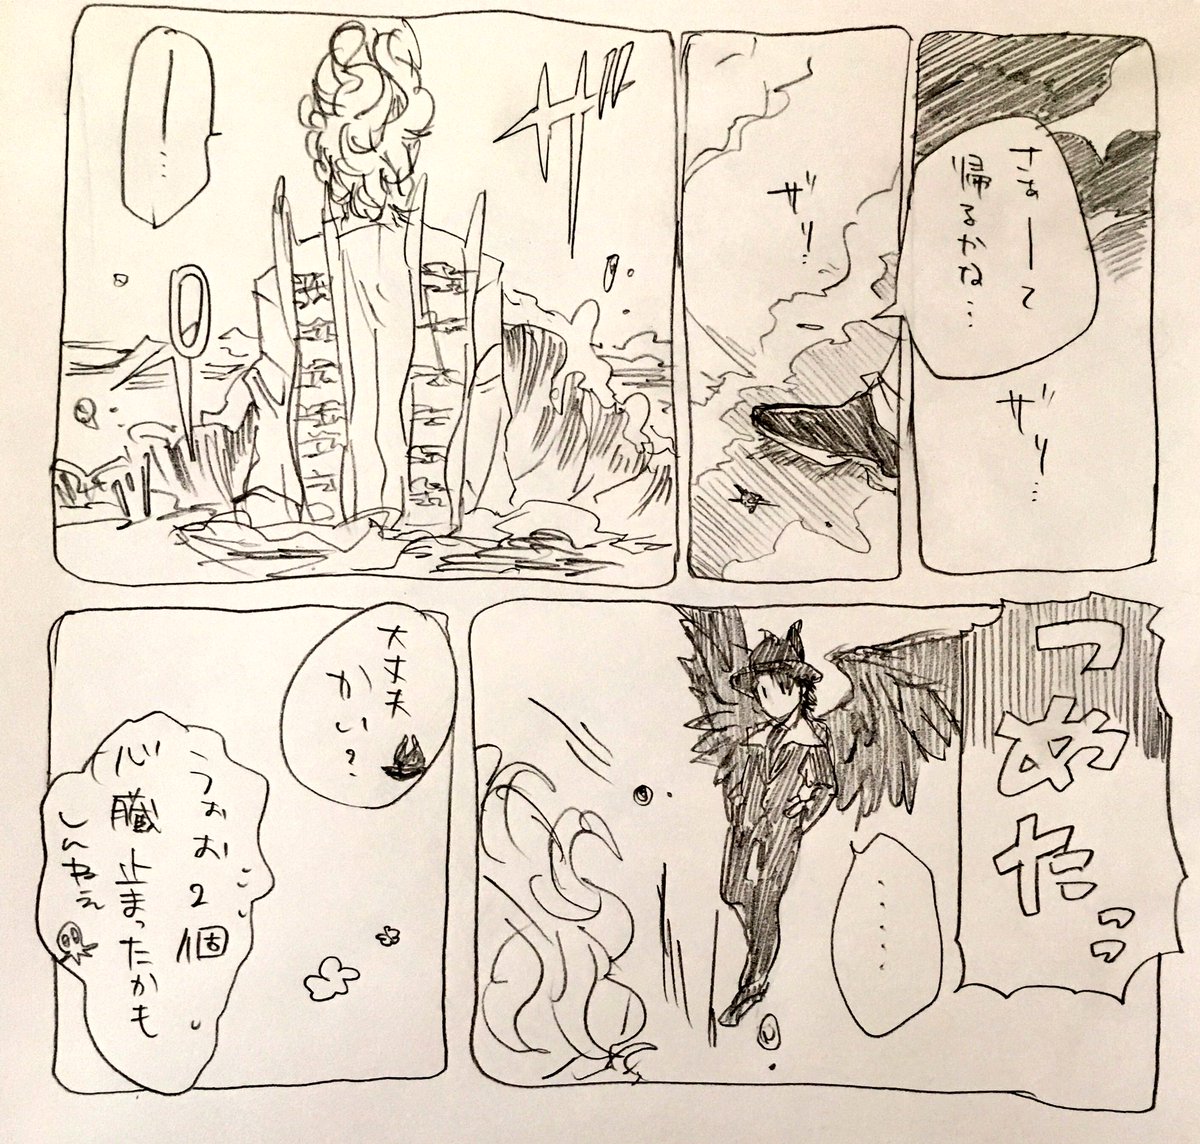 さぁーて
帰るかな…
ザリ…
ザリ!
ザッ
…
つめたっ
……
大丈夫
かい?
つぉお2個
心臓止まったかも
しんねぇ